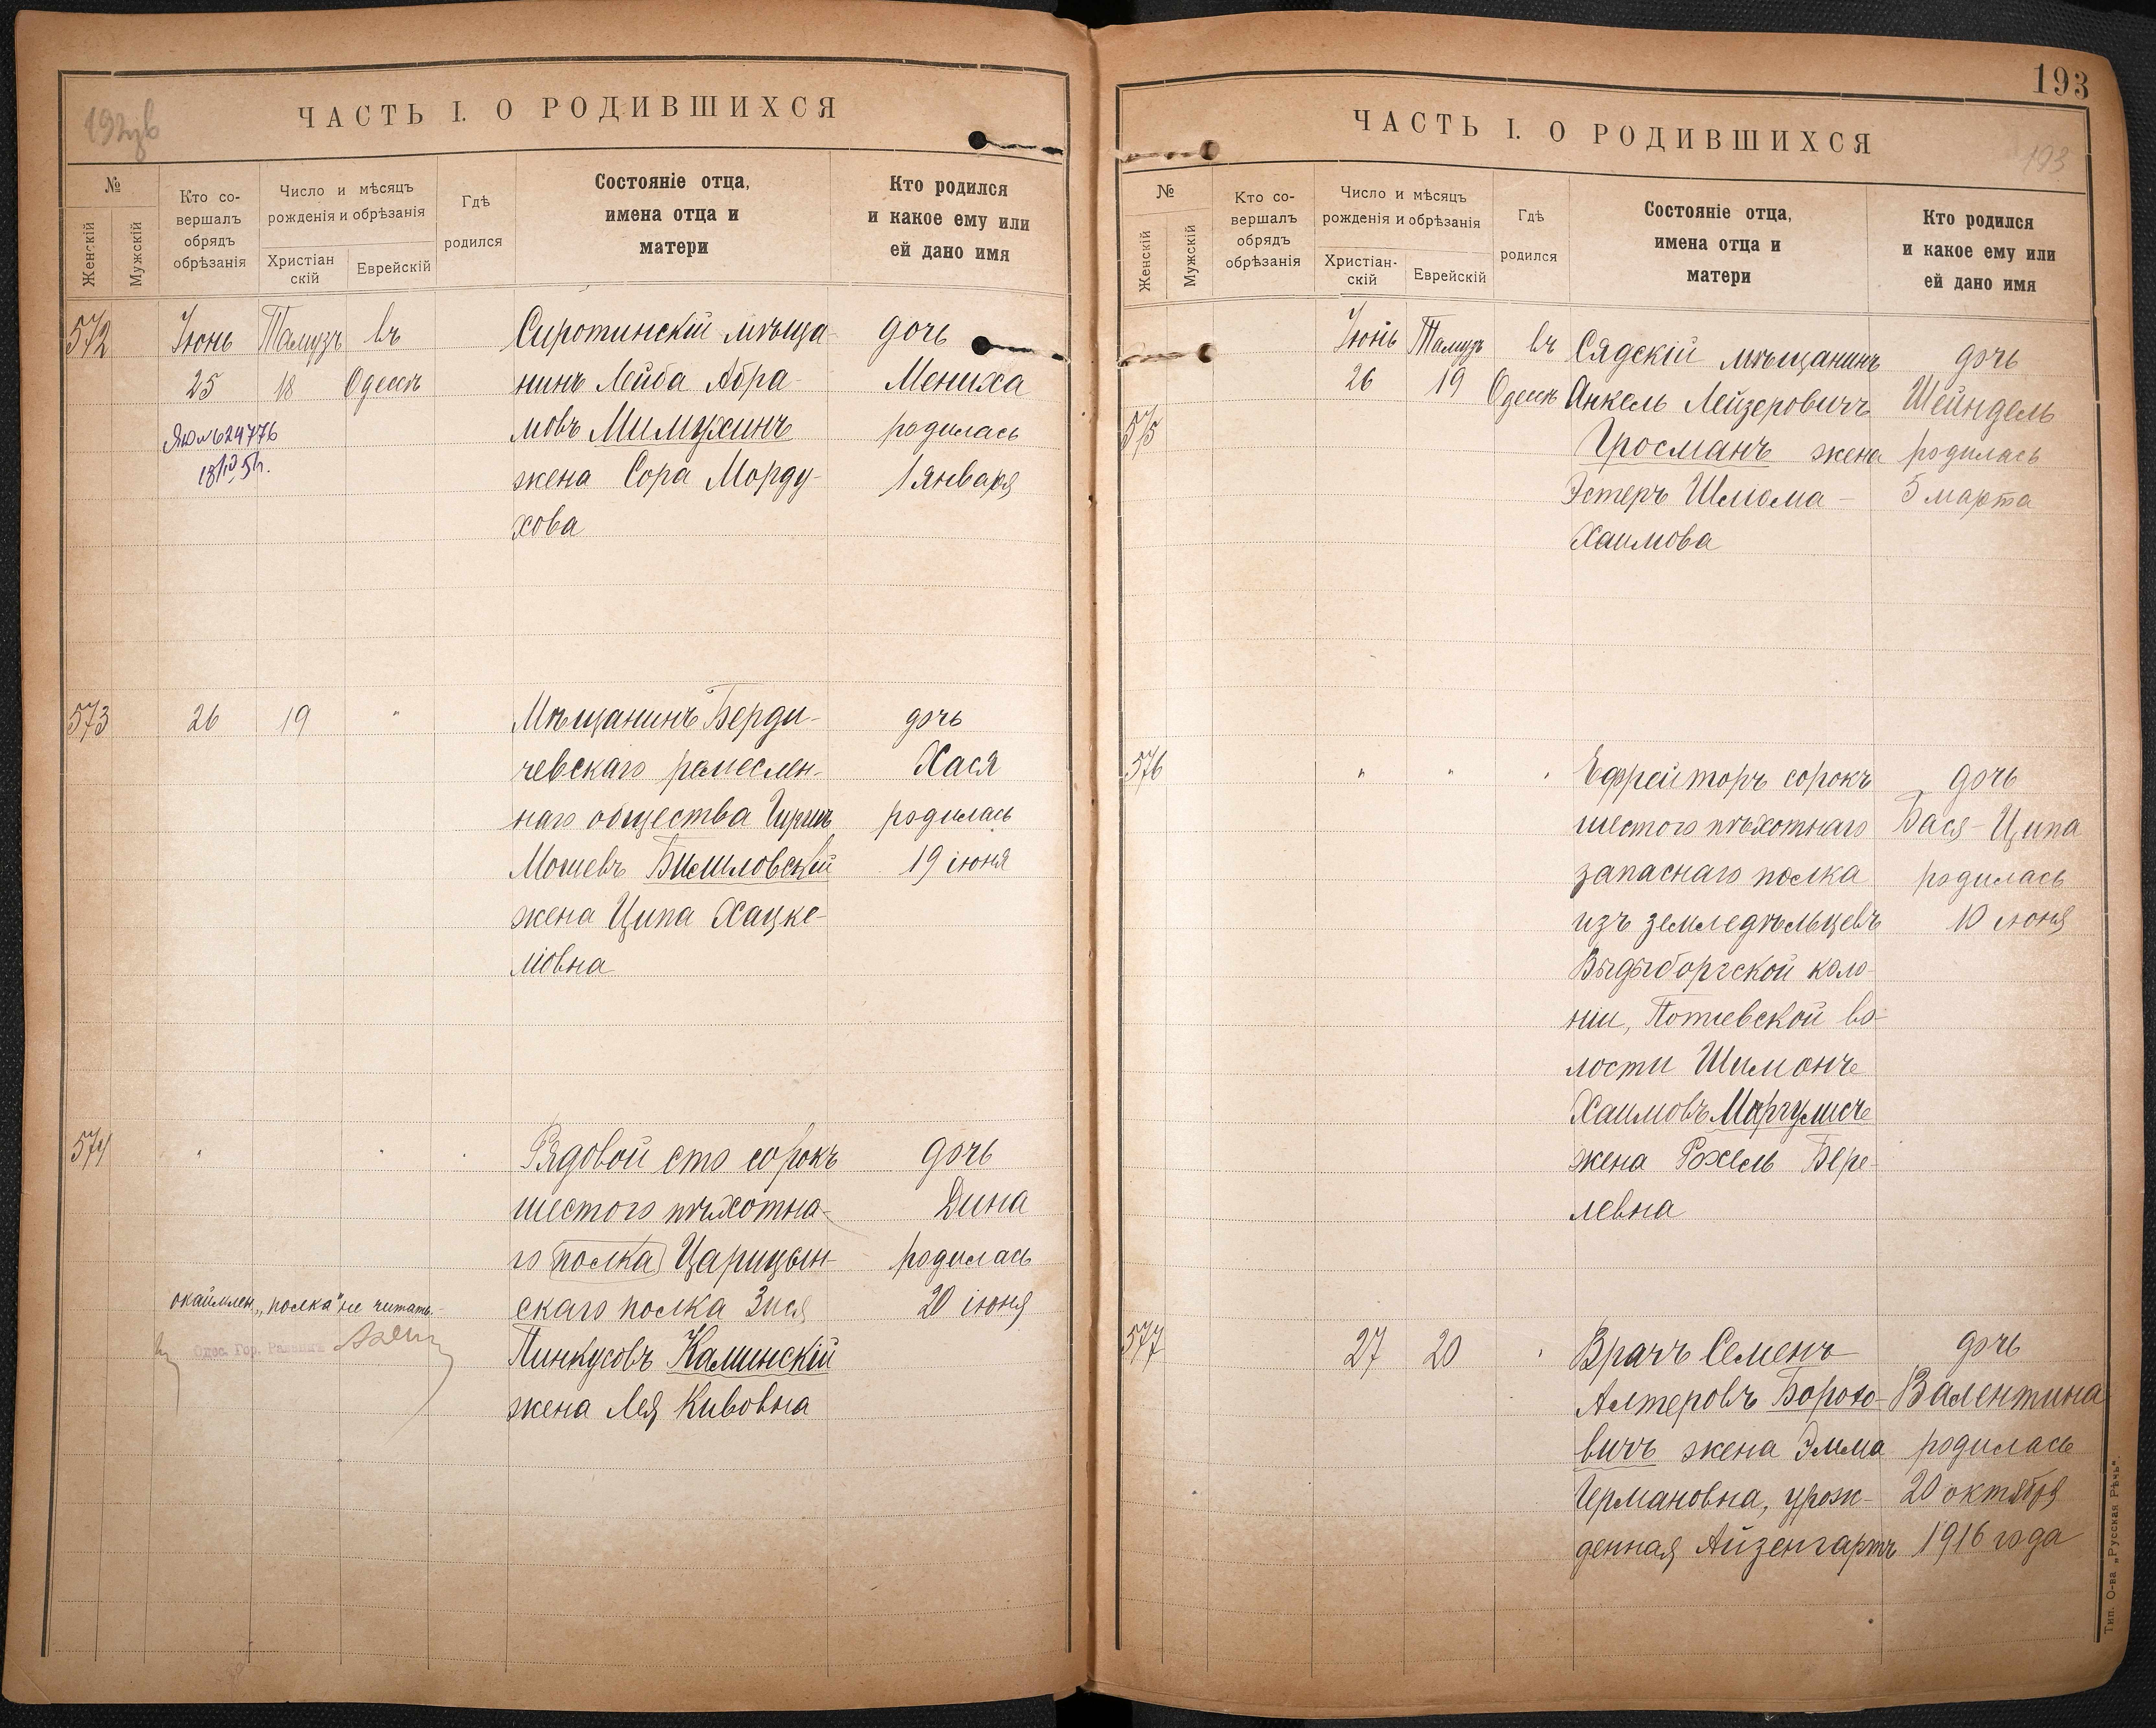 192об
ЧАСТЬ I. О РОДИВШИХСЯ
№
Женскій
Мужскій
Кто со-
вершалъ
обрядъ
обрѣзанія
Число и мѣсяцъ
рожденія и обрѣзанія
Христіан
скій
Еврейскій
Гдѣ
родился
Состояніе отца,
имена отца и
матери
Кто родился
и какое ему или
ей дано имя
572
Іюнь Тамузъ въ
25 18 Одессѣ
Сиротинскій мѣща-
нинъ Лейба Абра-
мовъ Милихинъ
жена Сора Морду-
хова
дочь
Мениха
родилась
1 января
573
26 19 "
Мѣщанинъ Берди-
чевскаго ремеслен-
наго общества Гиршъ
Мошевъ
жена Ципа Хацке-
ліовна
дочь
Хася
родилась
19 іюня
574
" " "
Рядовой сто сорокъ
шестого пѣхотна-
го полка Царицын-
скаго полка Зися
Пинкусовъ Калинскій
жена Лея Кивовна
дочь
Дина
родилась
20 іюня
окаймлен. „полка" не читать.
Одес. Гор. Раввинъ
193
ЧАСТЬ I. О РОДИВШИХСЯ
193
№
Женскій
Мужскій
Кто со-
вершалъ
обрядъ
обрѣзанія
Число и мѣсяцъ
рожденія и обрѣзанія
Христіан-
скій
Еврейскій
Гдѣ
родился
Состояніе отца,
имена отца и
матери
Кто родился
и какое ему или
ей дано имя
575
Іюнь Тамузъ въ
26 19 Одессѣ
Сядскій мѣщанинъ
Анкель Лейзеровичъ
Гросманъ жена
Эстеръ Шлиома-
Хаимова
дочь
Шейндель
родилась
5 марта
576
" " "
Ефрейторъ сорокъ
шестого пѣхотнаго
запаснаго полка
изъ земледѣльцевъ
колo-
ніи, Потіевской во-
лости Шимонъ
Хаимовъ Маргулисъ
жена Рохель Бере-
левна
дочь
Бася-Ципа
родилась
10 июня
577
27 20 "
Врачъ Семенъ
Алтеровъ Борохо-
вичъ жена Эмма
Германовна, урож-
денная Айзенгартъ
дочь
Валентина
родилась
20 октября
1916 года
Тип. О-ва „Русская Рѣчь".